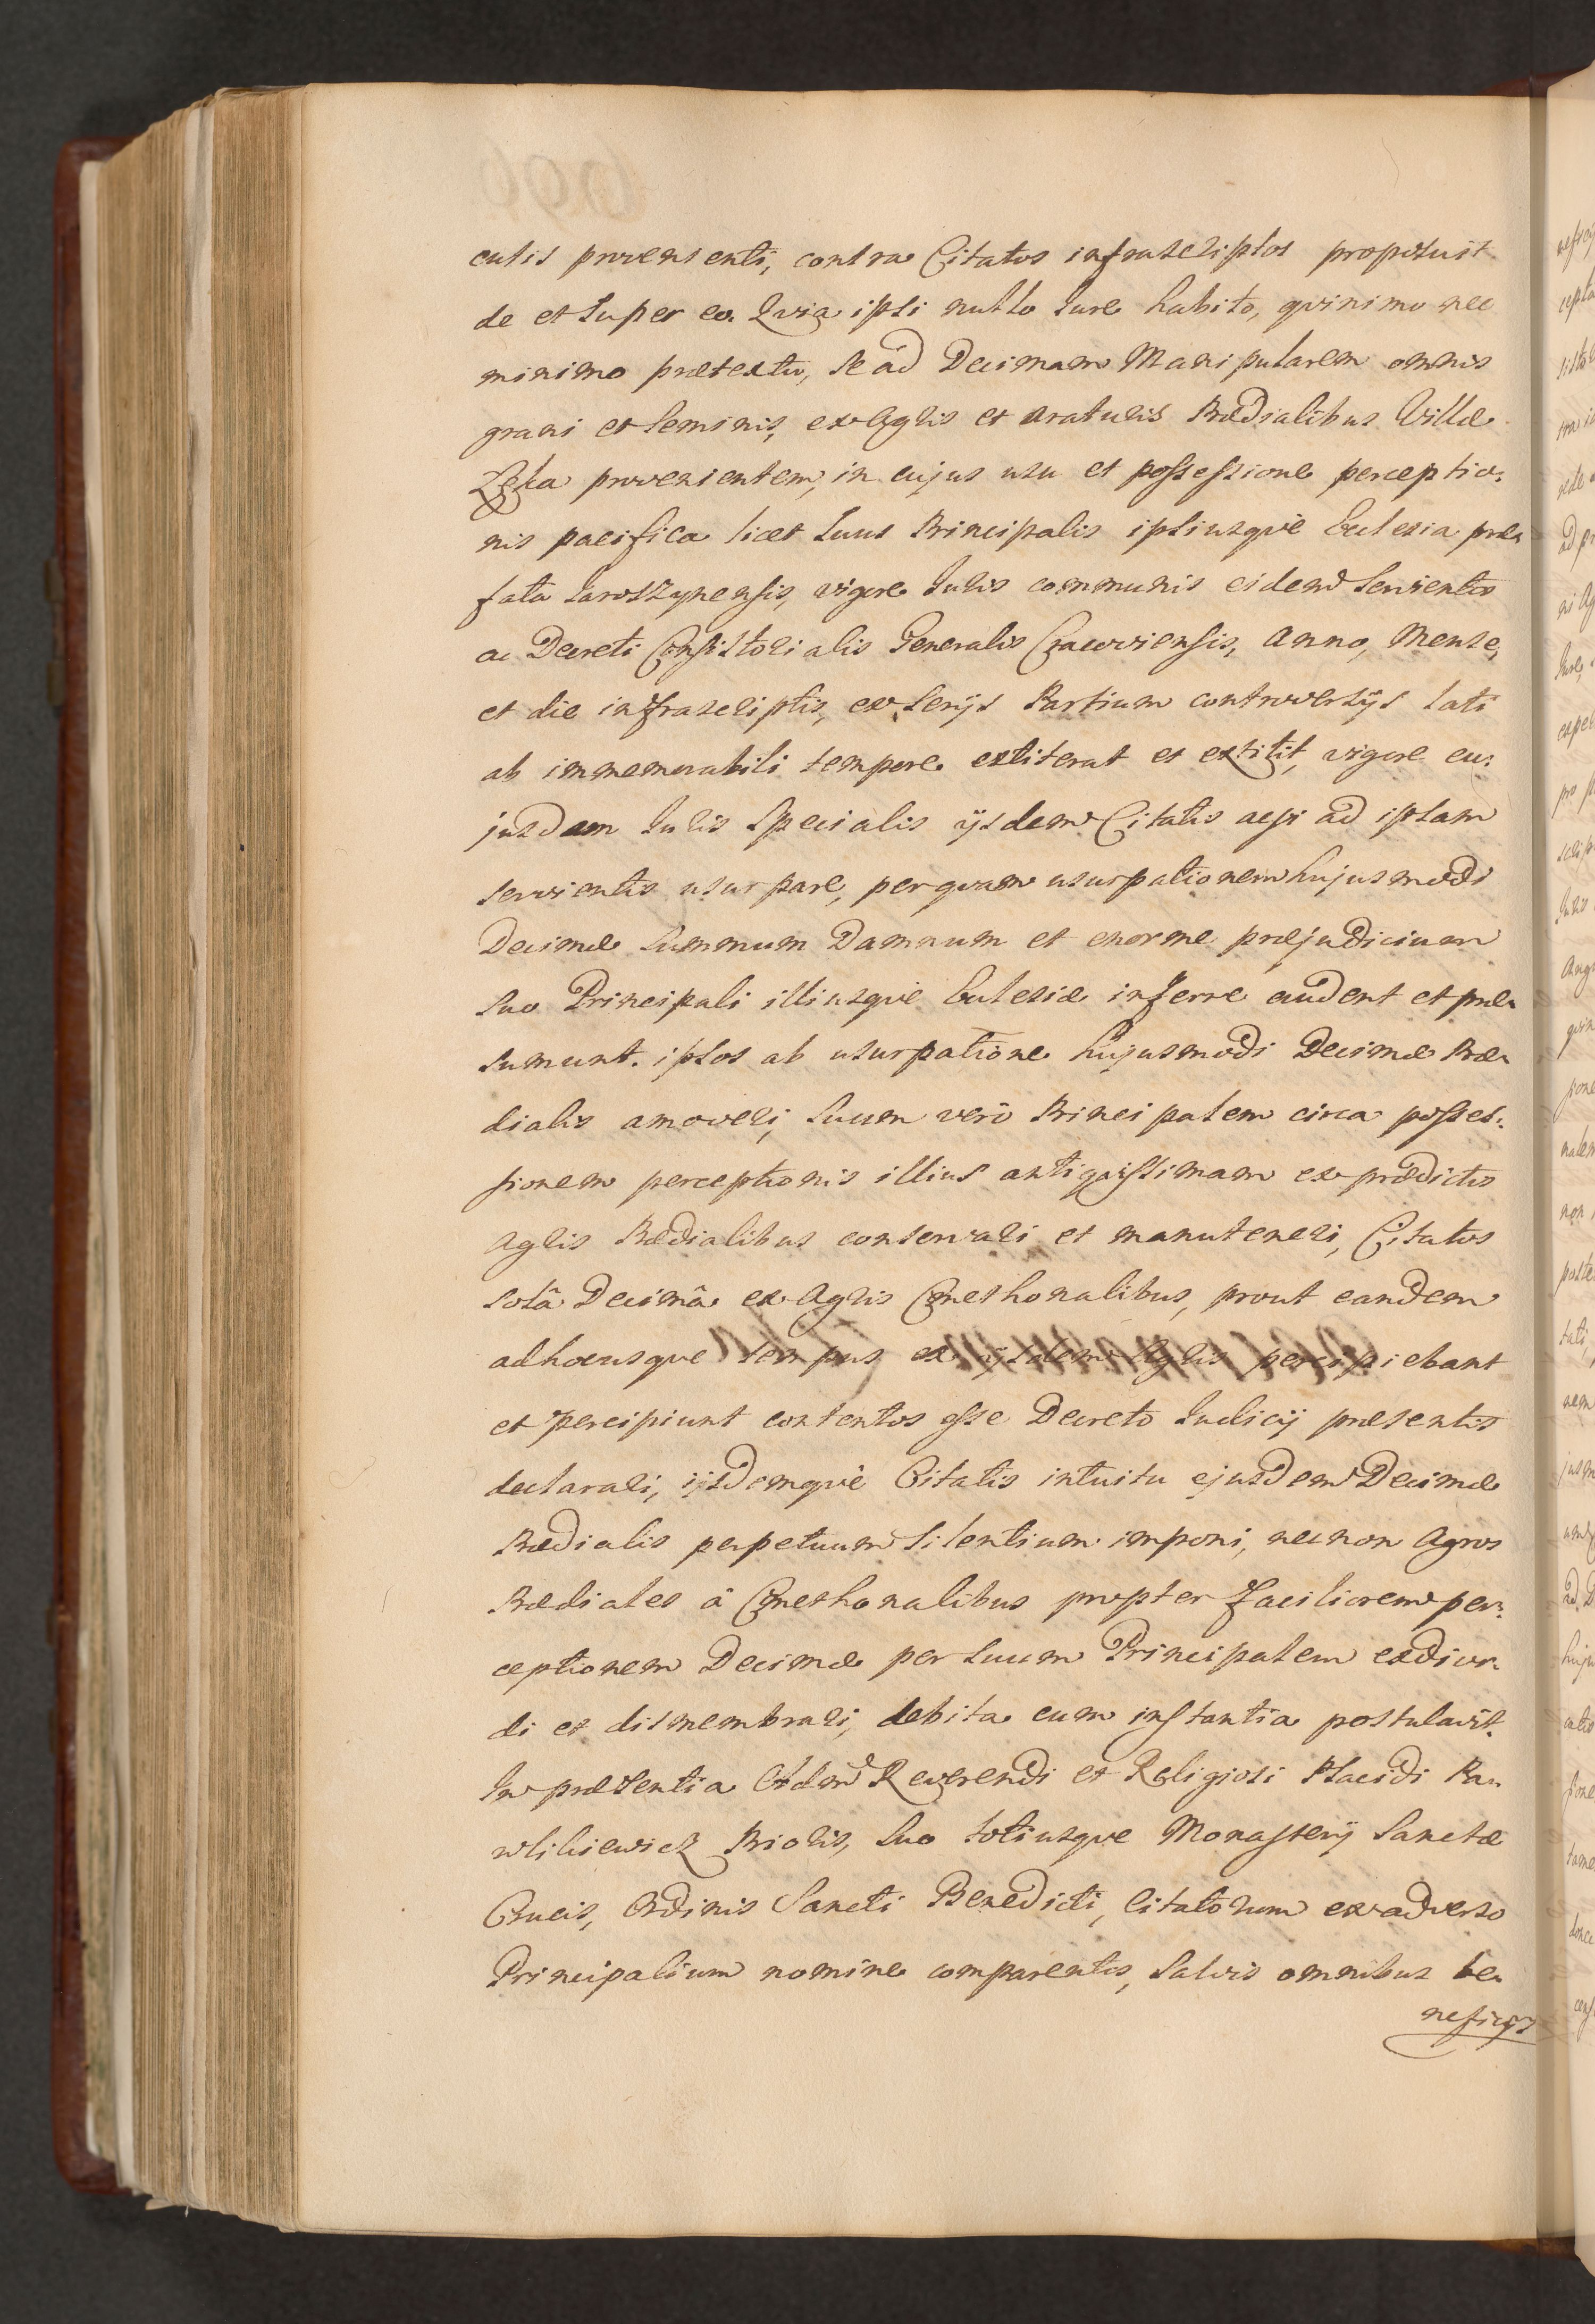 culis provenienti, contra Citatos infrascriptos proposuit
de et super eo. Quia ipsi nullo Iure habito, qvinimo nec
minimo prætextu, se ad Decimam Manipularem omnis
grani et seminis, ex Agris et araturis Prædialibus Villæ
provenientem, in cujus usu et possessione perceptio:
nis pacifica licet suus Principalis ipsiusqvè Ecclesia præ:
fata Jaroszynensis, vigore Iuris communis eidem servientis
ac Decreti Consistorialis Generalis Cracoviensis, Anno, Mense,
et die infrascriptis, ex serijs Partium controversijs lati
ab immemorabili tempore extiterat et extitit, vigore cu:
jusdam Iuris specialis ijsdem Citatis acsi ad ipsam
servientis usurpare, per qvam usurpationem hujusmodi
Decimæ summum Damnum et enorme præjudicium
suo Principali illiusqvè Ecclesiæ inferre audent et præ:
sumunt. ipsos ab usurpatione hujusmodi Decimæ Præ:
dialis amoveri, suum verò Principalem circa posses:
sionem perceptionis illius antiqvissimam ex prædictis
Agris Prædialibus conservari et manuteneri, Citatos
solâ Decimâ ex Agris Cmethonalibus, prout eandem
adhocusqve tempus ex ijsdem Agris percipiebant
et percipiunt contentos esse Decreto Iudicij præsentis
declarari, ijsdemqvè Citatis intuitu ejusdem Decimæ
Prædialis perpetuum silentium imponi, necnon Agros
Prædiales à Cmethonalibus propter faciliorem per:
ceptionem Decimæ per suum Principalem exdivi:
di et dismembrari, debita cum instantia postulavit.
In præsentia Reverendi et Religiosi Placidi Pa:
wlikiewicz Prioris, suo totiusqve Monasterij Sanctæ
Crucis, Ordinis Sancti Benedicti, Citatorum ex adverso
Principalium nomine comparentis, salvis omnibus be:
neficijs